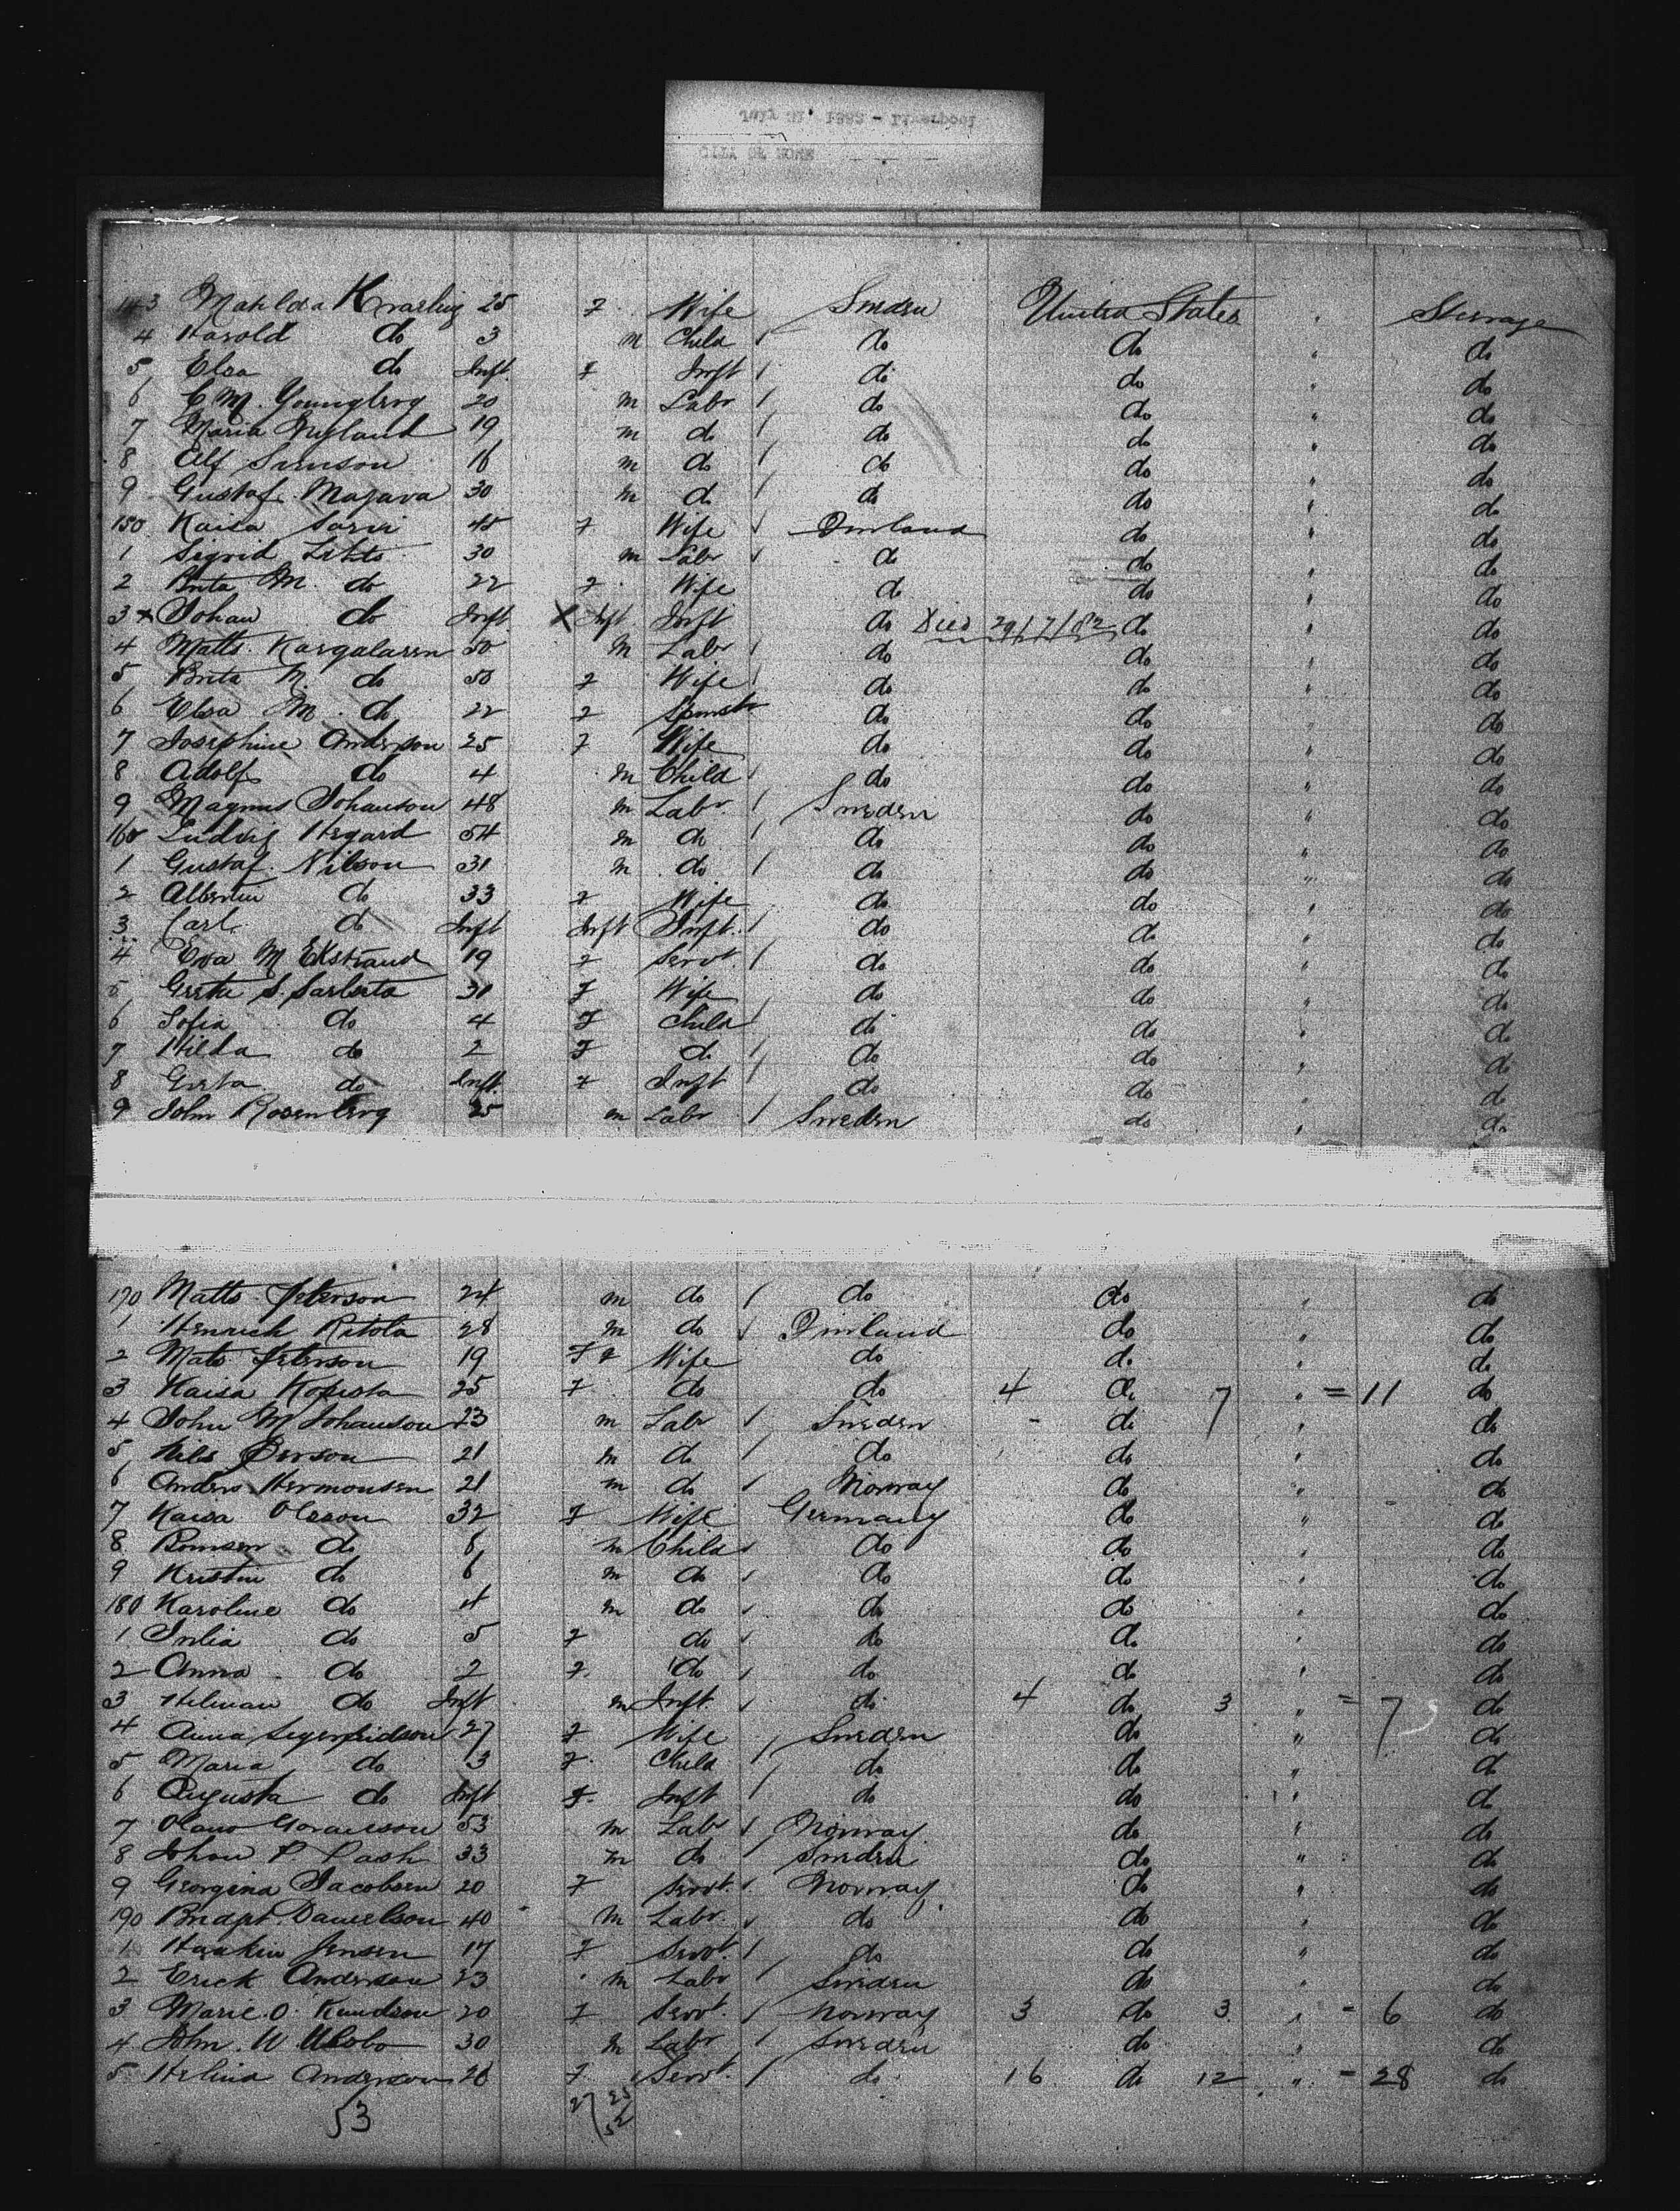 143 Matilda Kvarling 25 F Wife Sweden United States " Steerage
4 Harold do 3 m Child / do do " do
5 Elsa do Inft. F Inft / do do " do
6 C M. Youngberg 20 m Labr / do do " do
7 Maria Nyland 19 m do / do do " do
8 Alf Swenson 16 m do / do do " do
9 Gustaf Majava 30 m do / do do " do
150 Kaisa Sarvi 45 F Wife / Finland do " do
1 Sigrid Lihto 30 m Labr / do do " do
2 Brita M. do 22 F Wife do do " do
3 x Johan do Inft X Inft Inft do Died 29/7/82 do " do
4 Matts Kargalasen 50 m Labr / do do " do
5 Brita M. do 50 F Wife / do do " do
6 Elsa M. do 22 F Spinstr do do " do
7 Josephine Anderson 25 F Wife do do " do
8 Adolf do 4 m Child / do do " do
9 Magnus Johanson 48 m Labr / Sweden do " do
160 Ludvig Hegard 54 m do / do do " do
1 Gustaf Nilson 31 m do / do do " do
2 Albertin do 33 F Wife do do " do
3 Carl do Inft Inft Inft. / do do " do
4 Eva M Ekstrand 19 F Servt. / do do " do
5 Greta S. 30 F Wife do do " do
6 Sofia do 4 F Child / do do " do
7 Hilda do 2 F do / do do " do
8 Greta do Inft. F Inft / do do " do
9 John Rosenberg 25 m Labr / Sweden do " do
170 Matts Peterson 24 m do / do do " do
1 Henrich Ritola 28 m do / Finland do " do
2 Mats Peterson 19 F F Wife do do " do
3 Kaisa 25 F do do 4 do 7 " = 11 do
4 John M Johanson 23 m Labr / Sweden - do " do
5 Nils Person 21 m do / do do " do
6 Anders Hermonsen 21 m do / Norway do " do
7 Kaisa Olsson 32 F Wife Germany do " do
8 do 8 m Child / do do " do
9 Kristin do 6 m do / do do " do
180 Karoline do 4 m do / do do " do
1 Julia do 5 F do / do do " do
2 Anna do 2 F do / do do " do
3 Hilman do Inft m Inft. / do 4 do 3 " = 7 do
4 Anna Segerfridson 27 F Wife Sweden do " do
5 Maria do 3 F Child / do do " do
6 Augusta do Inft F Inft / do do " do
7 Olavo 53 m Labr / Norway do " do
8 Johan P Pash 33 m do Sweden do " do
9 Georgina Jacobsen 20 F Servt. / Norway do " do
190 Danielson 40 m Labr. / do do " do
1 Haakin Jensen 17 F Servt. / do do " do
2 Erick Anderson 23 m Labr / Sweden do " do
3 Marie O. Knudson 20 F Servt. / Norway 3 do 3 " = 6 do
4 John W. 30 m Labr / Sweden do " do
5 Helina Anderson 26 F Servt. / do 16 do 12 " = 28 do
53 27/25
52